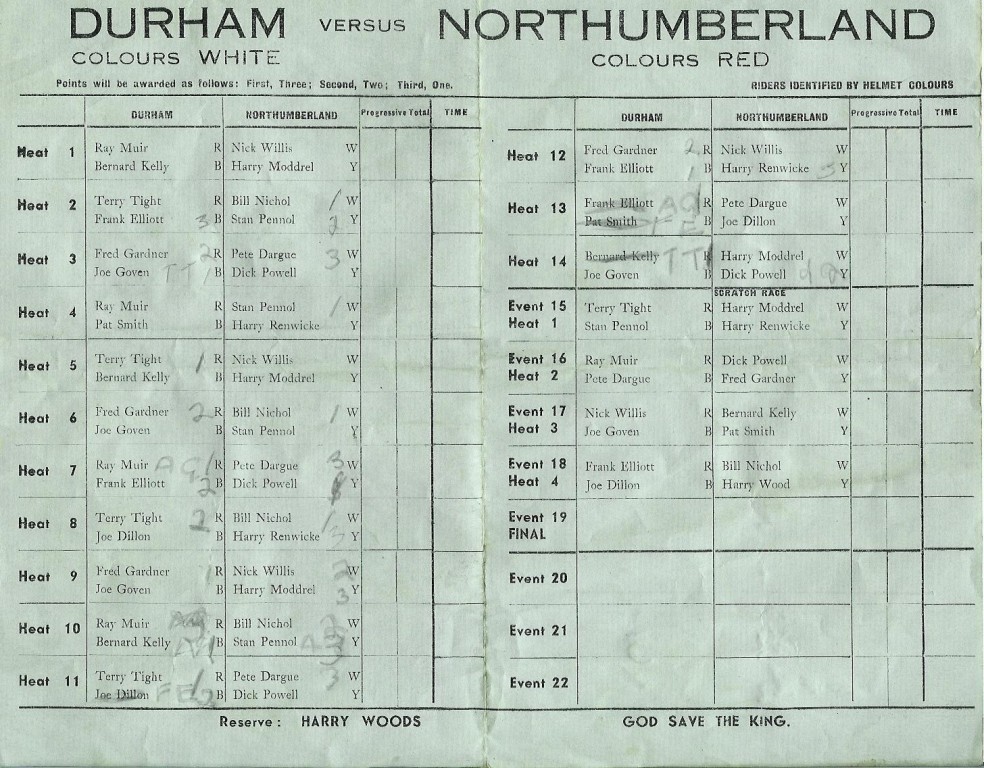 DURHAM VERSUS NORTHUMBERLAND
COLOURS WHITE COLOURS RED
Points will be awarded as follows: First, Three; Second, Two; Third, One. RIDERS IDENTIFIED BY HELMET COLOURS
DURHAM NORTHUMBERLAND Progressive Total TIME
Heat 1 Ray Muir R Nick Willis W
Bernard Kelly B Harry Moddrel Y
Heat 2 Terry Tight R Bill Nichol 1 W
Frank Elliott 3 B Stan Pennol 2 Y
Heat 3 Fred Gardner 2 R Pete Dargue 3 W
Joe Goven TT 1 B Dick Powell Y
Heat 4 Ray Muir R Stan Pennol 1 W
Pat Smith B Harry Renwicke Y
Heat 5 Terry Tight 1 R Nick Willis W
Bernard Kelly B Harry Moddrel Y
Heat 6 Fred Gardner 2 R Bill Nichol 1 W
Joe Goven B Stan Pennol Y
Heat 7 Ray Muir AG 1 R Pete Dargue 3 W
Frank Elliott 2 B Dick Powell Y
Heat 8 Terry Tight 2 R Bill Nichol 1 W
Joe Dillon B Harry Renwicke 3 Y
Heat 9 Fred Gardner 1 R Nick Willis 2 W
Joe Goven B Harry Moddrel 3 Y
Heat 10 Ray Muir R Bill Nichol W
Bernard Kelly B Stan Pennol Y
Heat 11 Terry Tight 1 R Pete Dargue 3 W
Joe Dillon FE 2 B Dick Powell Y
Reserve: HARRY WOODS
DURHAM NORTHUMBERLAND Progressive Total TIME
Heat 12 Fred Gardner 2 R Nick Willis W
Frank Elliott 1 B Harry Renwicke 3 Y
Heat 13 Frank Elliott AG R Pete Dargue W
Pat Smith FE B Joe Dillon Y
Heat 14 Bernard Kelly TT R Harry Moddrel W
Joe Goven B Dick Powell Y
SCRATCH RACE
Event 15 Terry Tight R Harry Moddrel W
Heat 1 Stan Pennol B Harry Renwicke Y
Event 16 Ray Muir R Dick Powell W
Heat 2 Pete Dargue B Fred Gardner Y
Event 17 Nick Willis R Bernard Kelly W
Heat 3 Joe Goven B Pat Smith Y
Event 18 Frank Elliott R Bill Nichol W
Heat 4 Joe Dillon B Harry Wood Y
Event 19
FINAL
Event 20
Event 21
Event 22
GOD SAVE THE KING.